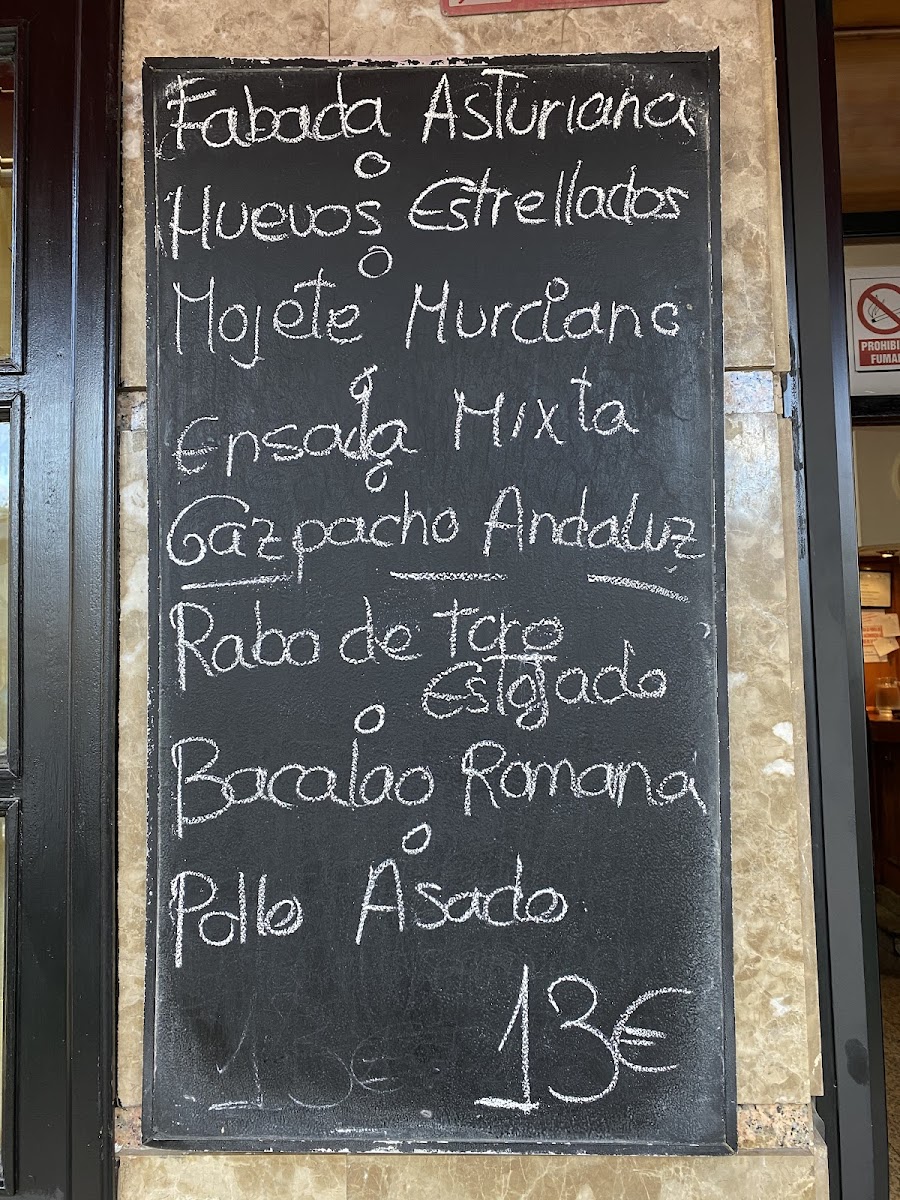 Fabada Asturiana
o
Huevos Estrellados
o
Mojete Murciano
o
Ensada Mixta
o
Gazpacho Andaluz
Rabo de Toro
Estofado
o
Bacalao Romana
o
Pollo Asado
13€
13€
PROHIBI
FUMA